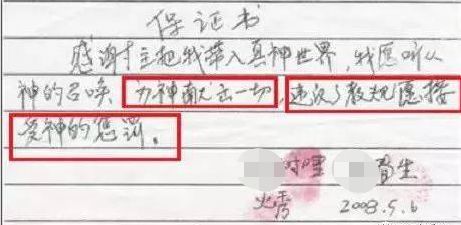 保证书
感谢主把我带入真神世界,我愿听从
神的召唤 为神献出一切,违反了教规愿接
受神的惩罚。
2008.5.6